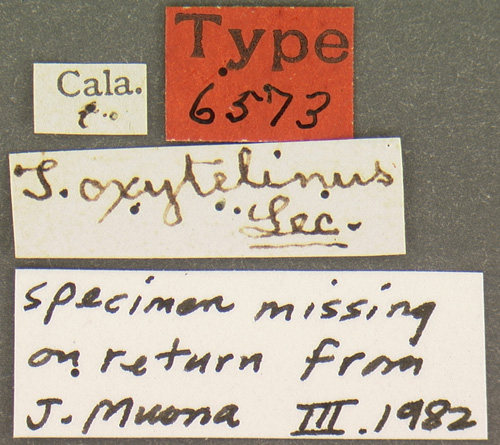 Type
6573
Cala.
T. oxytelinus
Lec.
specimen missing
on return from
J. Muona III. 1982